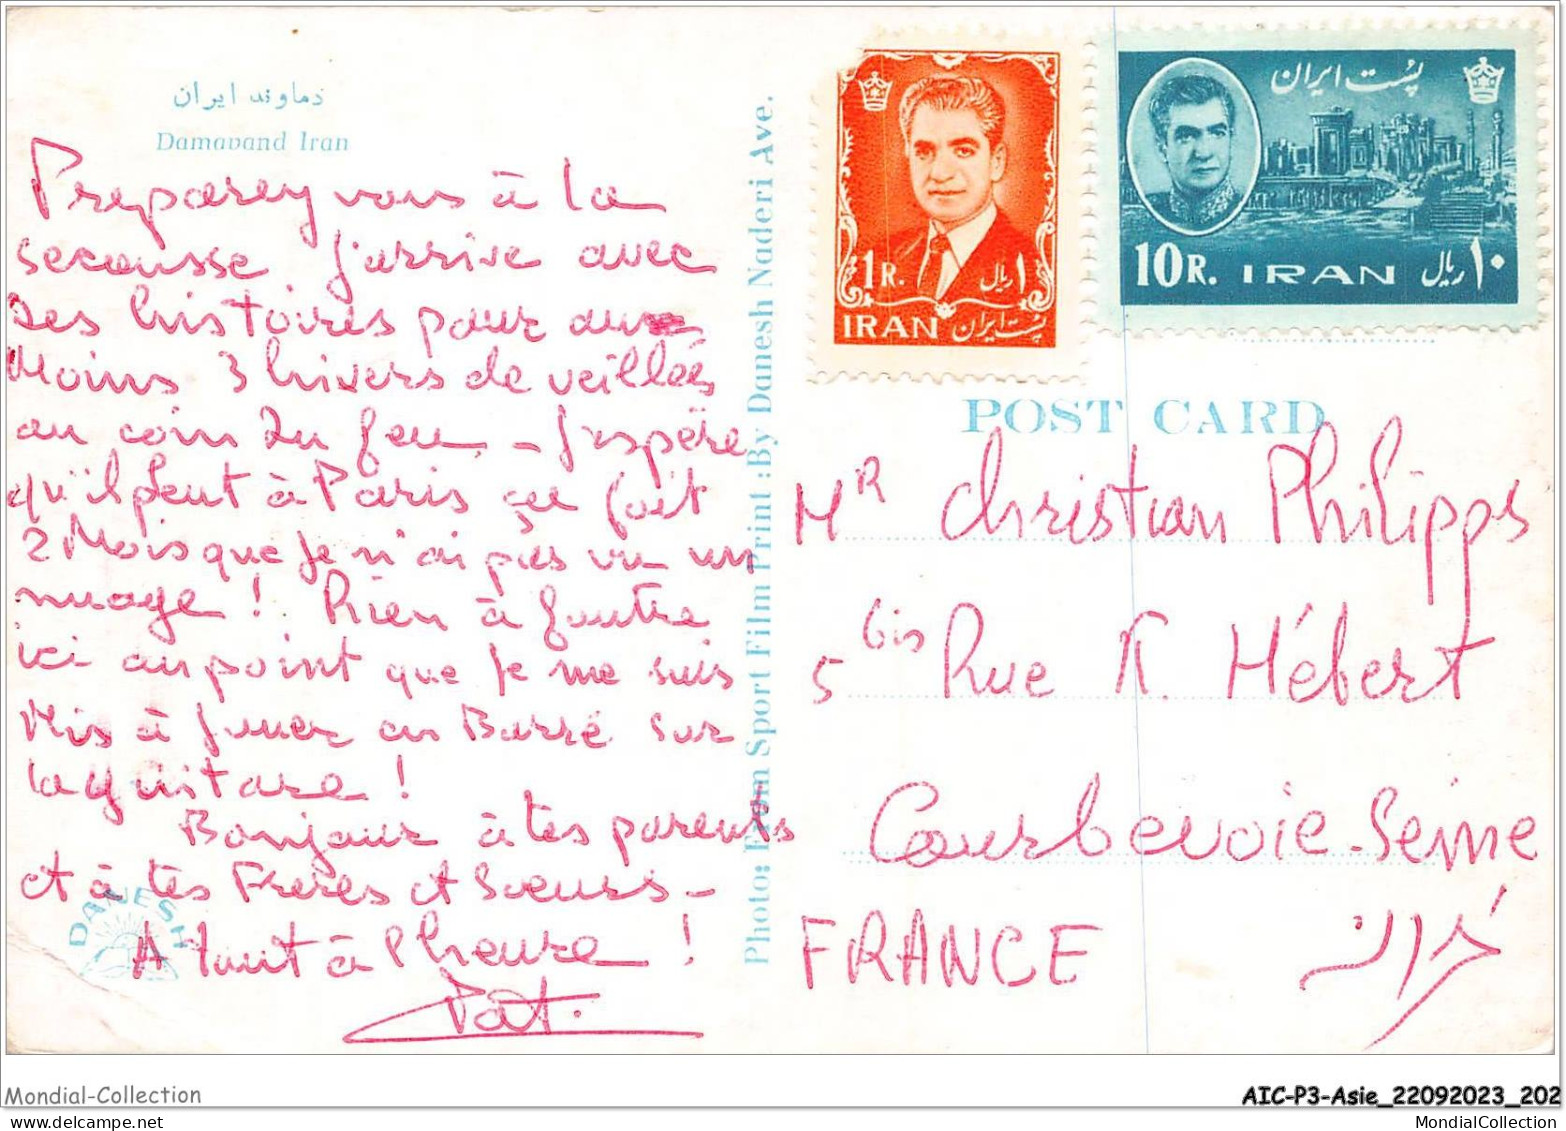 دماوند ایران
Damavand Iran
Preparez vous à la
secousse j'arrive avec
des histoires pour au
Moins 3 hivers de veillées
au coin du feu - J'espère
qu'il pleut à Paris ça fait
2 Mois que je n'ai pas vu un
nuage ! Rien à foutre
ici au point que je me suis
Mis à jouer au Barré sur
la guitare !
Bonjour à tes parents
et à tes Frères et Soeurs -
A tout à l'heure !
Pat.
DANESH
Photo: From Sport Film Print : By Danesh Naderi Ave.
1R. ۱ ریال
IRAN پست ایران
پست ایران
10R. IRAN ۱۰ ریال
POST CARD
Mr Christian Philipps
5 bis Rue K. Hébert
Courbevoie - Seine
FRANCE
Mondial-Collection
AIC-P3-Asie_22092023_202
MondialCollection